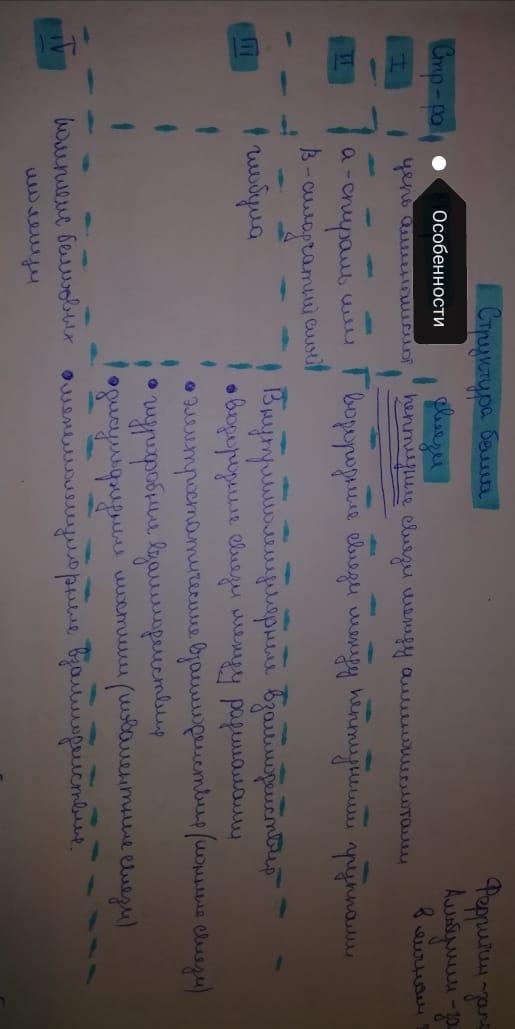 Структура белка
Стр-ра
Особенности
связи
I
цепь аминокислот
пептидные связи между аминокислотами
II
α-спираль или
β-складчатый слой
водородные связи между пептидными группами
III
глобула
Внутримолекулярные взаимодействия
• водородные связи между радикалами
• электростатические взаимодействия (ионные связи)
• гидрофобные взаимодействия
• дисульфидные мостики (ковалентные связи)
IV
комплекс белковых
молекул
• межмолекулярные взаимодействия.
Ферритин - 
Альбумин - 
в яичном